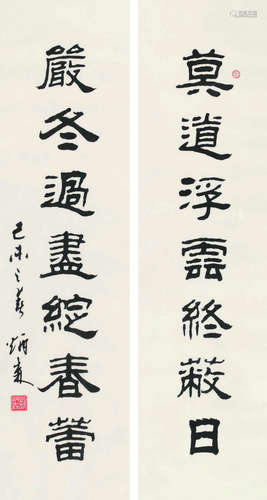 莫道浮雲終蔽日
嚴冬過盡綻春蕾
己未之春 炳森